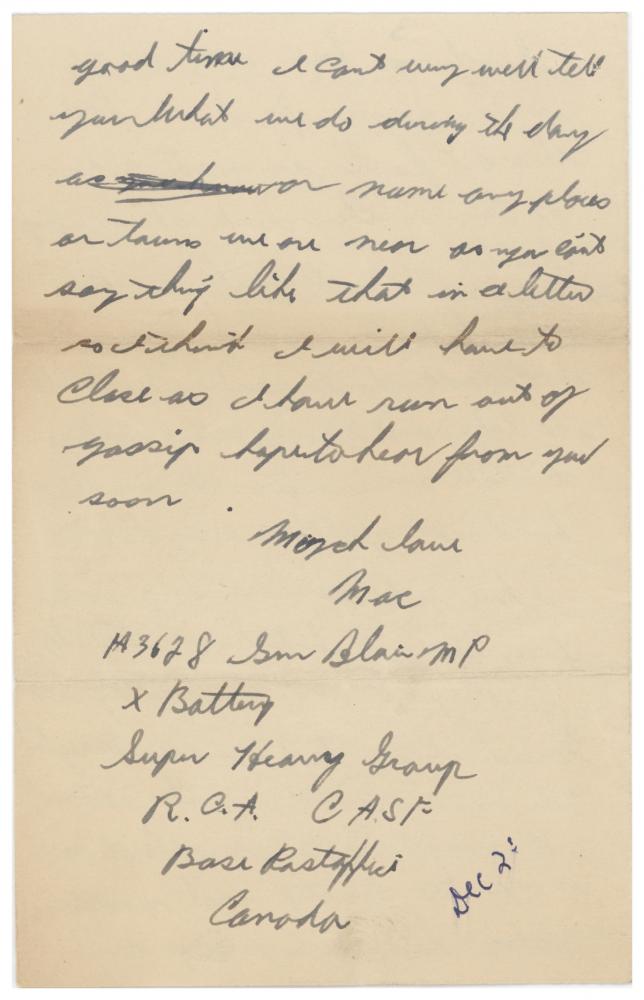 good time I cant very well tell
you what we do during the day
as or name any places
or towns we are near as you cant
say thing like that in a letter
so I think I will have to
close as I have run out of
gossip hope to hear from you
soon.
Much love
Mac
H3628 Gnr Blair MP
X Battery
Super Heavy Group
R.C.A. C A S F
Base Postoffice
Canada
Dec 2